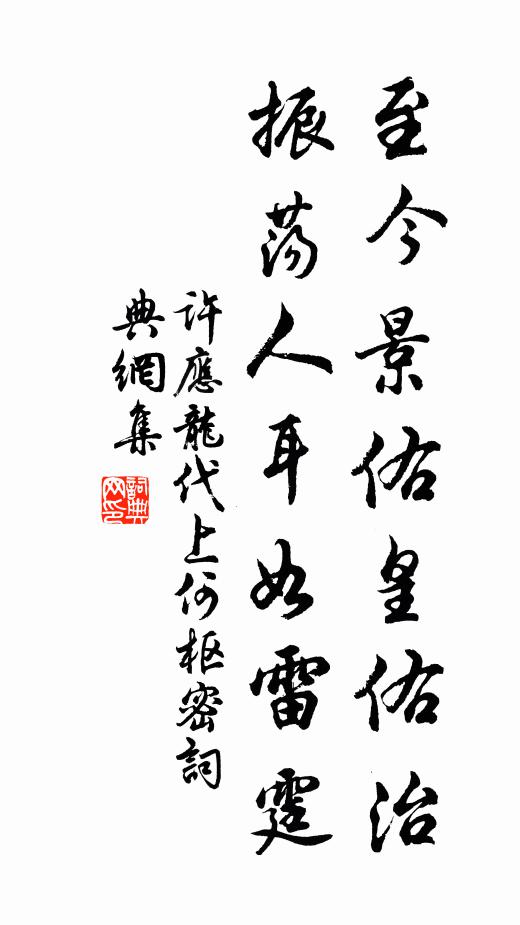 至今景佑皇佑治
振荡人耳如雷霆
許應龍代上何枢密詞
典網集
詞典網印